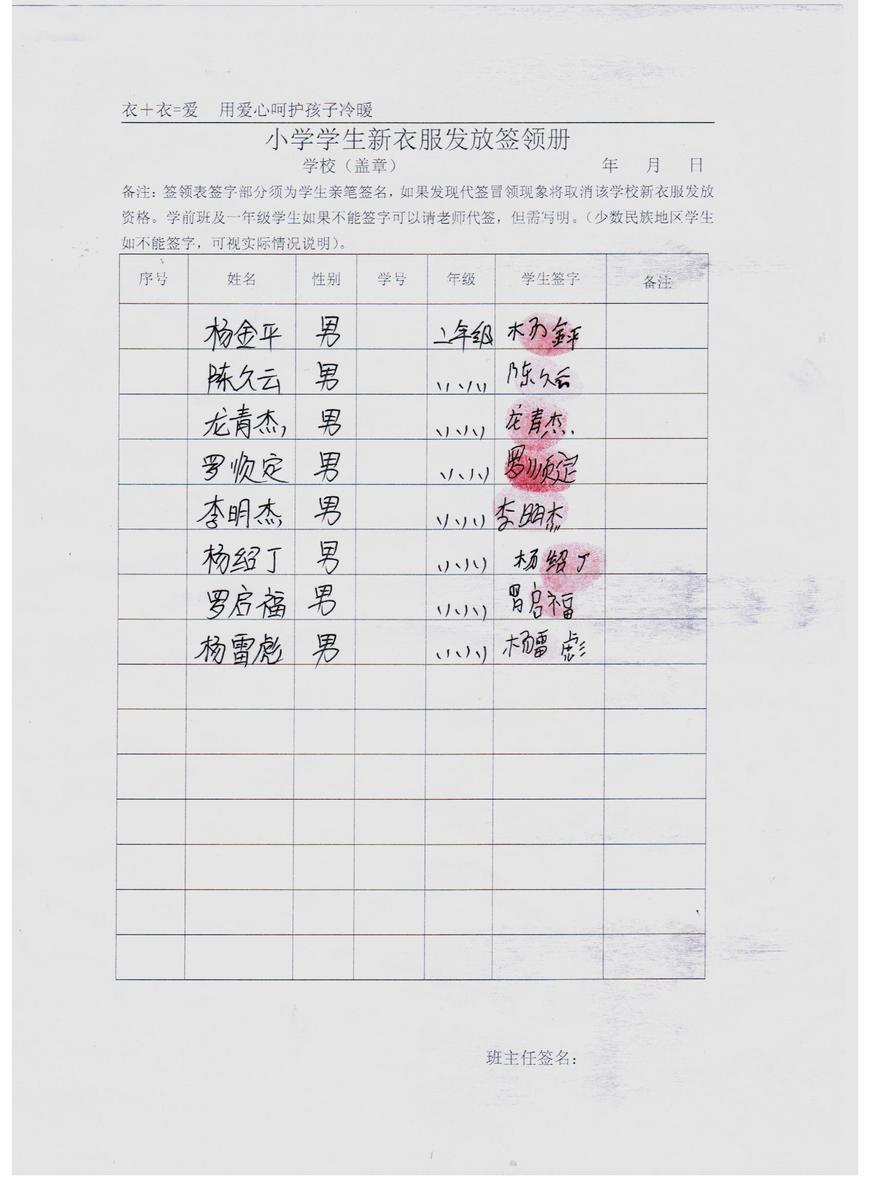 衣+衣=爱 用爱心呵护孩子冷暖
小学学生新衣服发放签领册
学校（盖章） 年 月 日
备注：签领表签字部分须为学生亲笔签名，如果发现代签冒领现象将取消该学校新衣服发放
资格。学前班及一年级学生如果不能签字可以请老师代签，但需写明。（少数民族地区学生
如不能签字，可视实际情况说明）。
序号 姓名 性别 学号 年级 学生签字 备注
杨金平 男 二年级 杨金平
陈久云 男 〃 〃 陈久云
龙青杰 男 〃 〃 龙青杰
罗顺定 男 〃 〃 罗顺定
李明杰 男 〃 〃 李明杰
杨绍丁 男 〃 〃 杨绍丁
罗启福 男 〃 〃 罗启福
杨雷彪 男 〃 〃 杨雷彪
班主任签名：